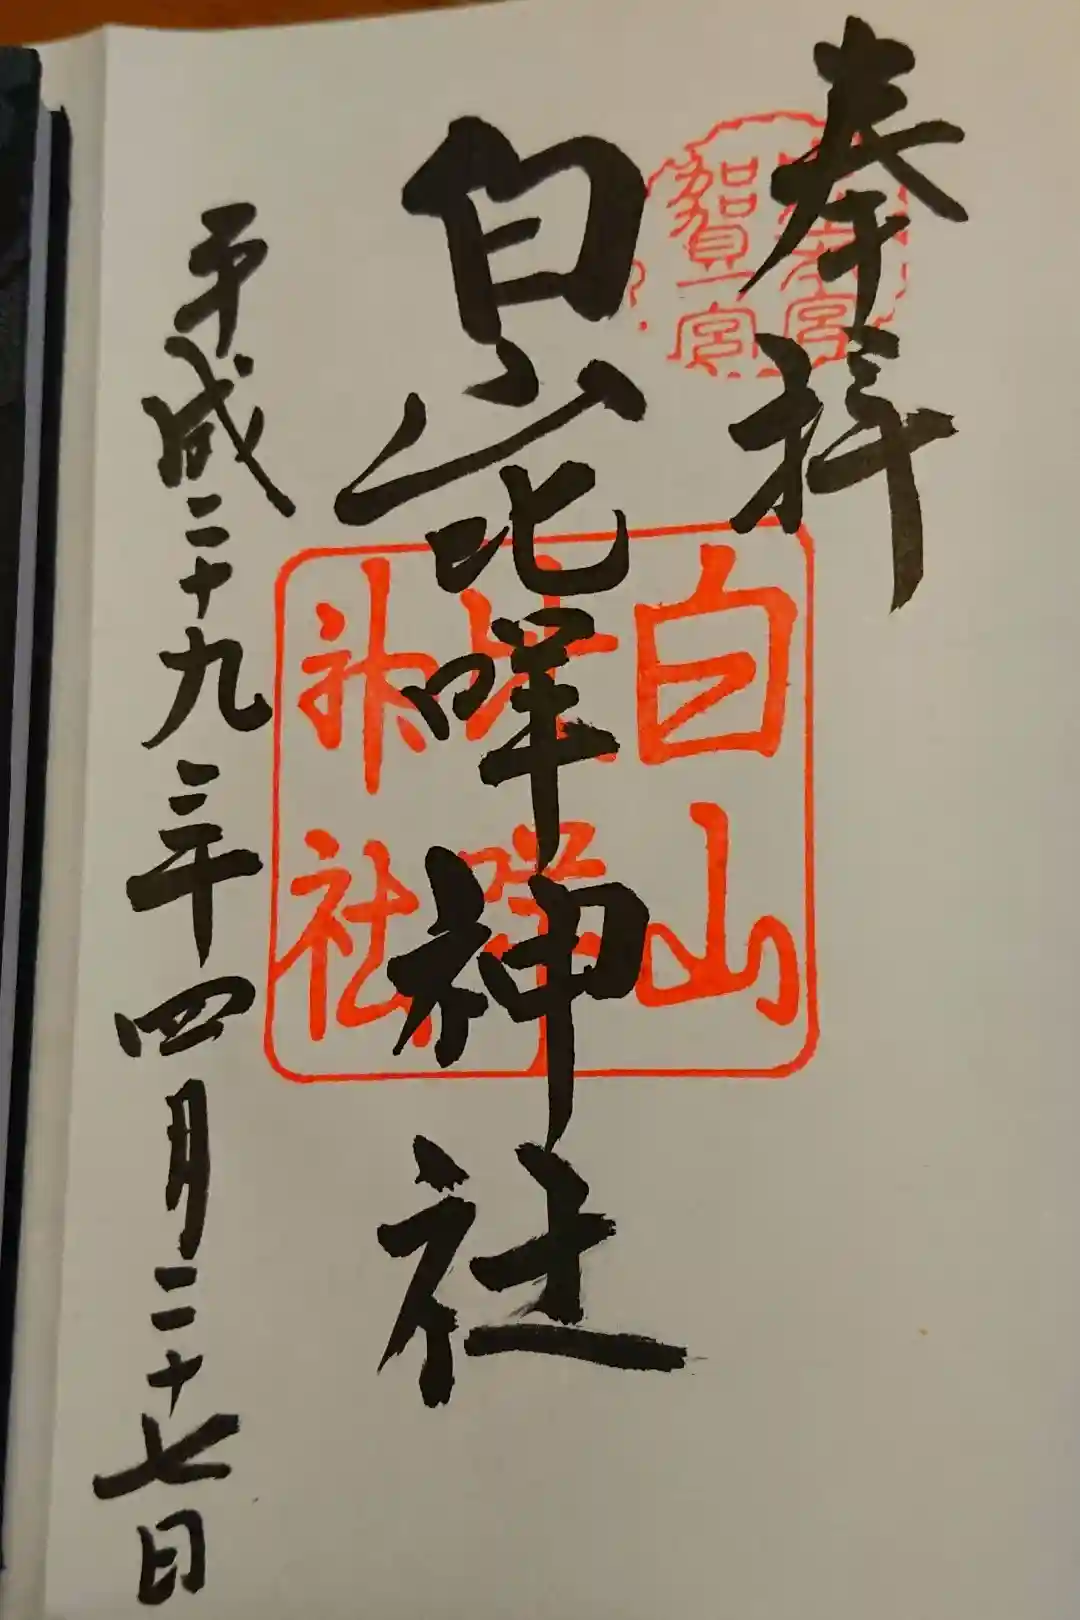 奉拝
白山比咩神社
平成二十九年四月二十七日
賀一宮
白山
比咩
神社